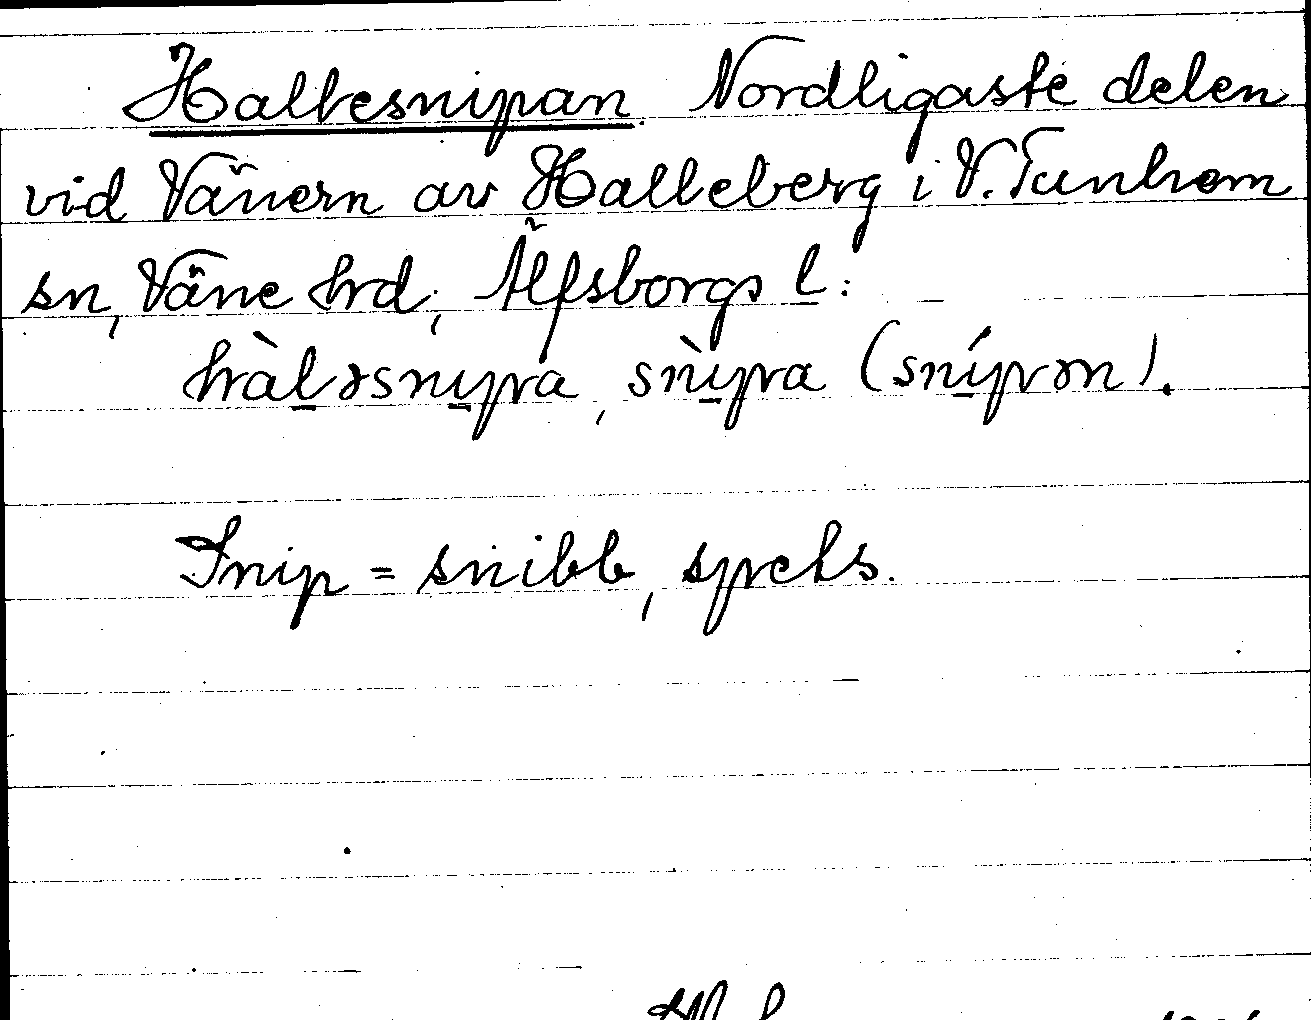 Hallesnipan. Nordligaste delen
vid Vänern av Halleberg i V. Tunhem
sn, Väne hrd, Älfsborgs l:
hàl̲əsni̲pa, snì̲pa (sní̲pən).
Snip = snibb, spets.